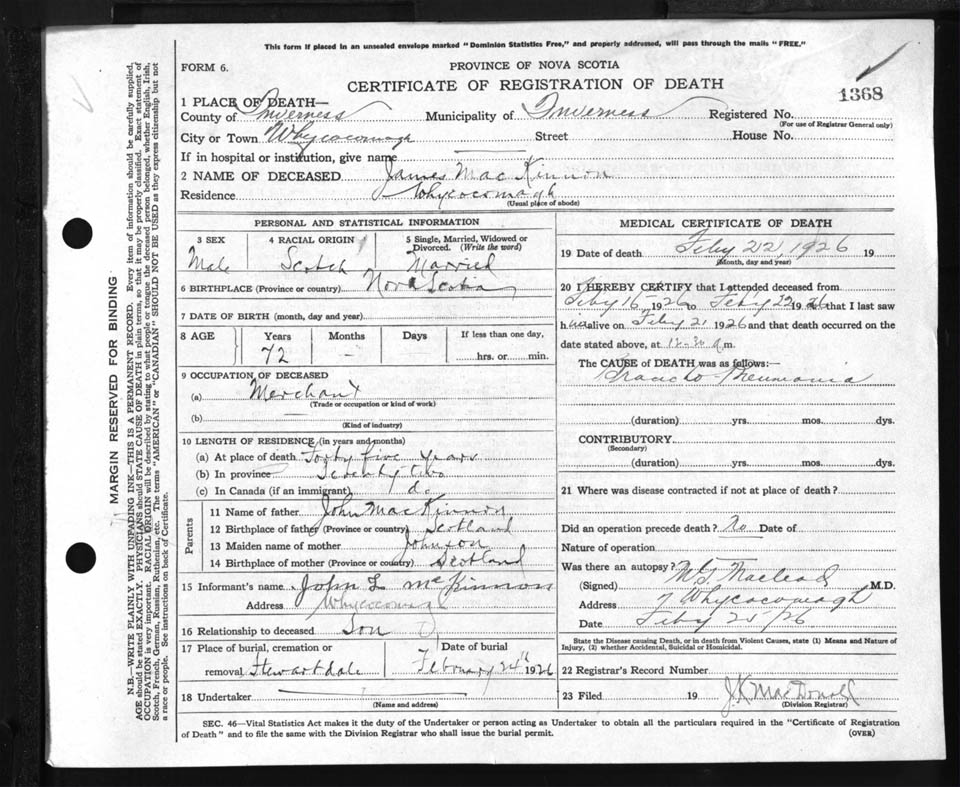 This form if placed in an unsealed envelope marked "Dominion Statistics Free," and properly addressed, will pass through the mails "FREE."
FORM 6.
PROVINCE OF NOVA SCOTIA
CERTIFICATE OF REGISTRATION OF DEATH
1368
1 PLACE OF DEATH—
County of Inverness Municipality of Inverness Registered No.
(For use of Registrar General only)
City or Town Whycocomagh Street House No.
If in hospital or institution, give name
2 NAME OF DECEASED James MacKinnon
Residence Whycocomagh
(Usual place of abode)
PERSONAL AND STATISTICAL INFORMATION
3 SEX 4 RACIAL ORIGIN 5 Single, Married, Widowed or Divorced. (Write the word)
Male Scotch Married
6 BIRTHPLACE (Province or country) Nova Scotia
7 DATE OF BIRTH (month, day and year)
8 AGE Years Months Days If less than one day,
72 - hrs. or min.
9 OCCUPATION OF DECEASED
(a) Merchant
(Trade or occupation or kind of work)
(b)
(Kind of industry)
10 LENGTH OF RESIDENCE (in years and months)
(a) At place of death Forty five years
(b) In province Seventy two
(c) In Canada (if an immigrant) do
Parents
11 Name of father John MacKinnon
12 Birthplace of father (Province or country) Scotland
13 Maiden name of mother Johnson
14 Birthplace of mother (Province or country) Scotland
15 Informant's name John L McKinnon
Address Whycocomagh
16 Relationship to deceased Son
17 Place of burial, cremation or removal Stewartdale Date of burial February 24th 1926
18 Undertaker
(Name and address)
MEDICAL CERTIFICATE OF DEATH
19 Date of death Feby 22, 1926 19
(Month, day and year)
20 I HEREBY CERTIFY that I attended deceased from
Feby 16 - 1926 to Feby 22 1926 that I last saw
him alive on Feby 21 1926 and that death occurred on the
date stated above, at 12-30 a m.
The CAUSE of DEATH was as follows:—
Broncho-Pneumonia
(duration) yrs. mos. dys.
CONTRIBUTORY
(Secondary)
(duration) yrs. mos. dys.
21 Where was disease contracted if not at place of death?
Did an operation precede death? No Date of
Nature of operation
Was there an autopsy?
(Signed) Macleod M.D.
Address Whycocomagh
Date Feby /26
State the Disease causing Death, or in death from Violent Causes, state (1) Means and Nature of
Injury, (2) whether Accidental, Suicidal or Homicidal.
22 Registrar's Record Number
23 Filed 19 J.K MacDonald
(Division Registrar)
SEC. 46—Vital Statistics Act makes it the duty of the Undertaker or person acting as Undertaker to obtain all the particulars required in the "Certificate of Registration
of Death" and to file the same with the Division Registrar who shall issue the burial permit. (OVER)
MARGIN RESERVED FOR BINDING
N.B.—WRITE PLAINLY WITH UNFADING INK—THIS IS A PERMANENT RECORD. Every item of information should be carefully supplied,
AGE should be stated EXACTLY. PHYSICIANS should STATE CAUSE OF DEATH in plain terms, so that it may be properly classified. Exact statement of
OCCUPATION is very important. RACIAL ORIGIN will be described by stating to what people or tongue the deceased person belonged, whether English, Irish,
Scotch, French, German, Russian, Ruthenian, etc. The terms "AMERICAN" or "CANADIAN" SHOULD NOT BE USED as they express citizenship but not
a race or people. See instructions on back of Certificate.